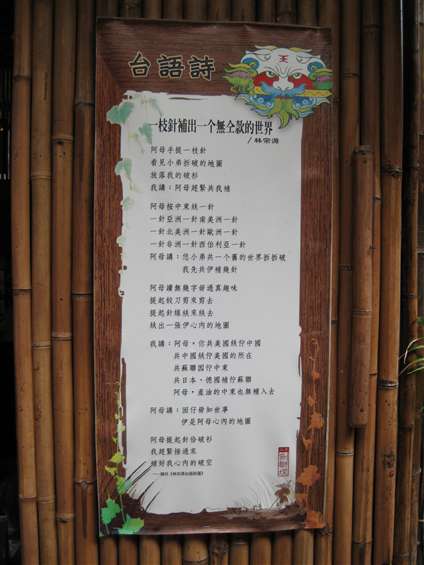 台語詩
王
一枝針補出一个無仝款的世界
/林宗源
阿母手提一枝針
看見小弟拆破的地圖
放落我的破衫
我講：阿母趕緊共我補
阿母按中東紩一針
一針亞洲一針南美洲一針
一針北美洲一針歐洲一針
一針非洲一針西伯利亞一針
阿母講：恁小弟共一个舊的世界拆拆破
我先共伊補幾針
阿母讀無幾字
提起鉸刀剪來剪去
提起針線紩來紩去
紩出一張伊心內的地圖
我講：阿母，你共美國紩佇中國
共中國紩佇美國的所在
共蘇聯囥佇中東
共日本、德國補佇蘇聯
阿母，產油的中東也無補入去
阿母講：囡仔毋知世事
伊是阿母心內的地圖
阿母提起針佮破衫
我趕緊接過來
補好我心內的破空